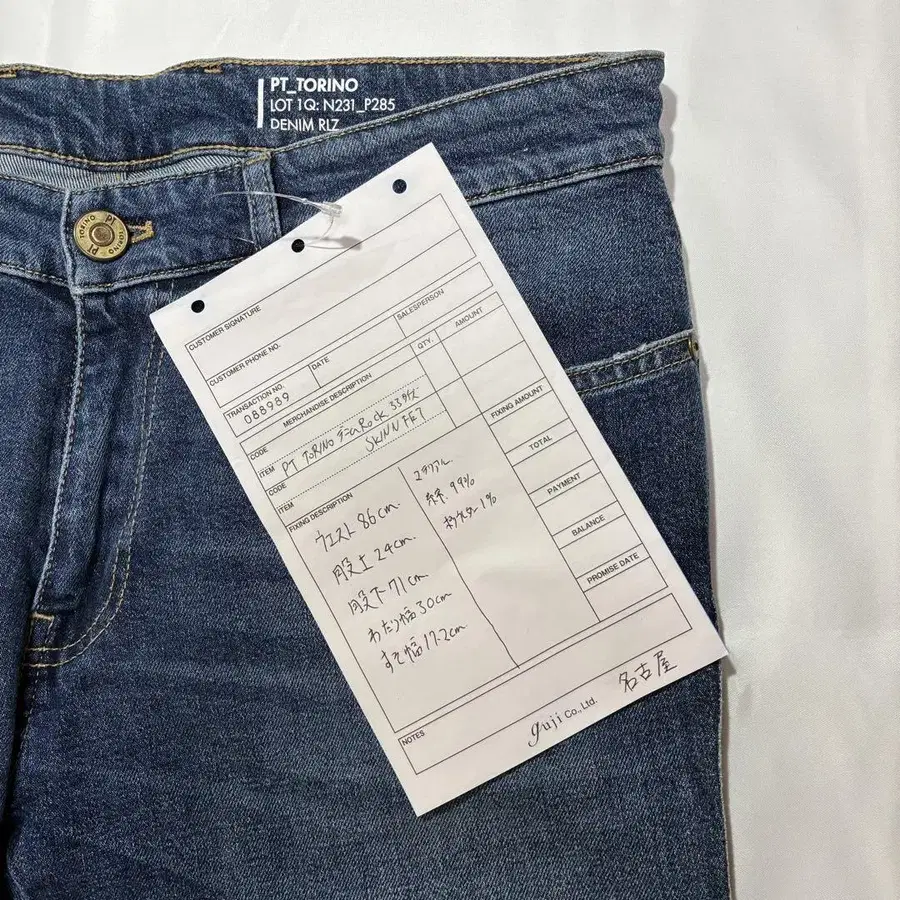 PT_TORINO
LOT 1Q: N231_P285
DENIM RLZ
PT TORINO PT TORINO
CUSTOMER SIGNATURE
CUSTOMER PHONE NO.
SALESPERSON
TRANSACTION NO.
088989
DATE
MERCHANDISE DESCRIPTION
QTY.
AMOUNT
CODE
ITEM PT TORINO デニム Rock 33サイズ
CODE SKINN FIT
ITEM
FIXING AMOUNT
FIXING DESCRIPTION
ウエスト 86cm
股上 24cm
股下 71cm
わたり幅 30cm
すそ幅 17.2cm
マテリアル
99%
1%
TOTAL
PAYMENT
BALANCE
PROMISE DATE
NOTES
guji Co., Ltd.
名古屋